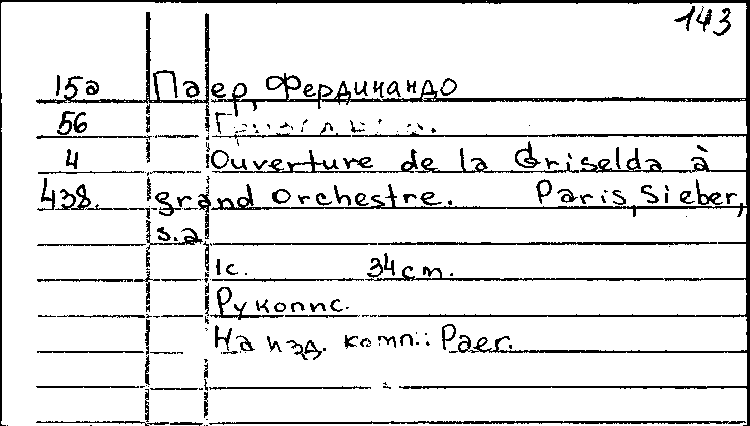 143
15а Паер, Фердинандо
56
4 Ouverture de la Griselda à
438. grand Orchestre. Paris, Sieber,
s.a
1с. 34cm.
Рукопис.
На изд. комп.: Paer.